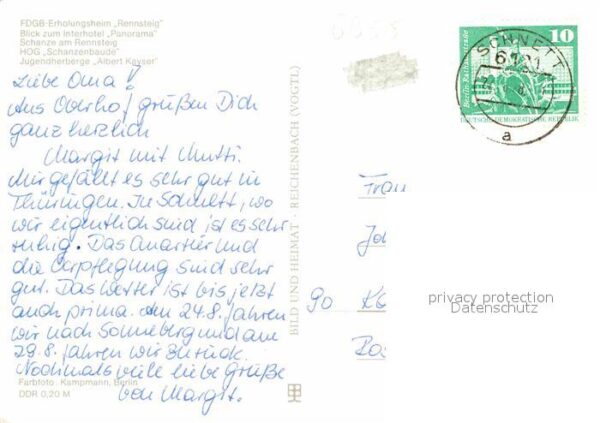 FDGB-Erholungsheim „Rennsteig"
Blick zum Interhotel „Panorama"
Schanze am Rennsteig
HOG „Schanzenbaude"
Jugendherberge „Albert Kayser"
Liebe Oma!
Aus Oberhof grüßen Dich
ganz herzlich
Margit mit Mutti.
Mir gefällt es sehr gut in
Thüringen. In Schnett, wo
wir eigentlich sind ist es sehr
ruhig. Das Quartier und
die Verpflegung sind sehr
gut. Das Wetter ist bis jetzt
auch prima. Am 24.8. fahren
wir nach Sonneberg und am
29.8. fahren wir zurück.
Nochmals viele liebe Grüße
von Margit.
Farbfoto: Kampmann, Berlin
DDR 0,20 M
BILD UND HEIMAT · REICHENBACH (VOGTL)
SCHNETT
6121
a
10
Berlin, Rathausstraße
DEUTSCHE DEMOKRATISCHE REPUBLIK
90
privacy protection
Datenschutz